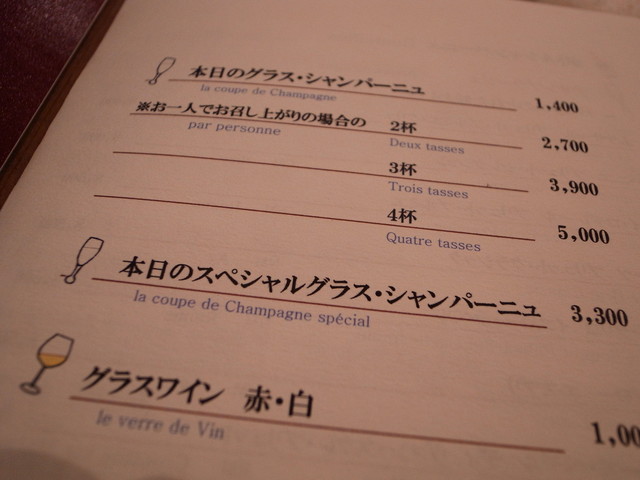 本日のグラス・シャンパーニュ 1,400
la coupe de Champagne
※お一人でお召し上がりの場合の 2杯 2,700
par personne Deux tasses
3杯 3,900
Trois tasses
4杯 5,000
Quatre tasses
本日のスペシャルグラス・シャンパーニュ 3,300
la coupe de Champagne spécial
グラスワイン 赤・白 1,00
le verre de Vin